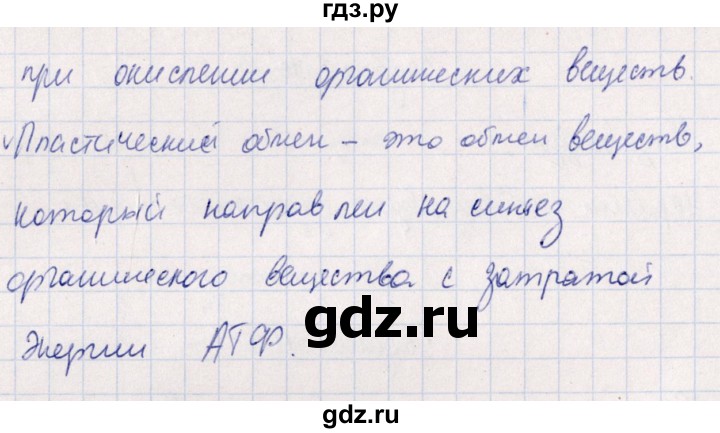 гдз.ру
при окислении органических веществ.
Пластический обмен – это обмен веществ,
который направлен на синтез
органического вещества с затратой
энергии АТФ.
gdz.ru
gdz.ru